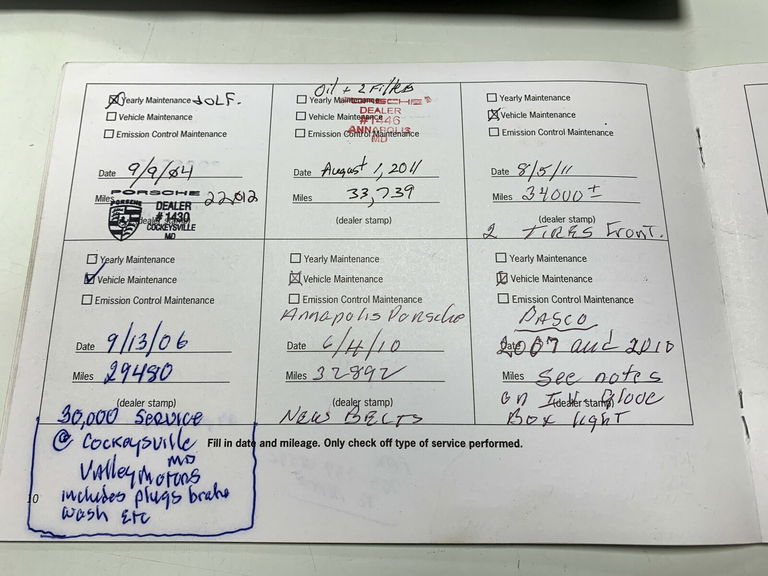 Yearly Maintenance LOLF.
Vehicle Maintenance
Emission Control Maintenance
Date 9/9/04
Miles 22,012
PORSCHE
PORSCHE
DEALER
# 1430
COCKEYSVILLE
MD
(dealer stamp)
Oil + 2 Filters
Yearly Maintenance
Vehicle Maintenance
Emission Control Maintenance
PORSCHE
DEALER
#1446
ANNAPOLIS
MD
Date August 1, 2011
Miles 33,739
(dealer stamp)
Yearly Maintenance
Vehicle Maintenance
Emission Control Maintenance
Date 8/5/11
Miles 34000 ±
(dealer stamp)
2 TIRES Front.
Yearly Maintenance
Vehicle Maintenance
Emission Control Maintenance
Date 9/13/06
Miles 29480
(dealer stamp)
30,000 Service
@ Cockeysville
MD
Valley Motors
includes plugs brake
wash ETC
Yearly Maintenance
Vehicle Maintenance
Emission Control Maintenance
Annapolis Porsche
Date 6/4/10
Miles 32892
(dealer stamp)
NEW BELTS
Yearly Maintenance
Vehicle Maintenance
Emission Control Maintenance
PASCO
Date 2007 and 2010
Miles See notes
(dealer stamp)
on Glove
Box light
Fill in date and mileage. Only check off type of service performed.